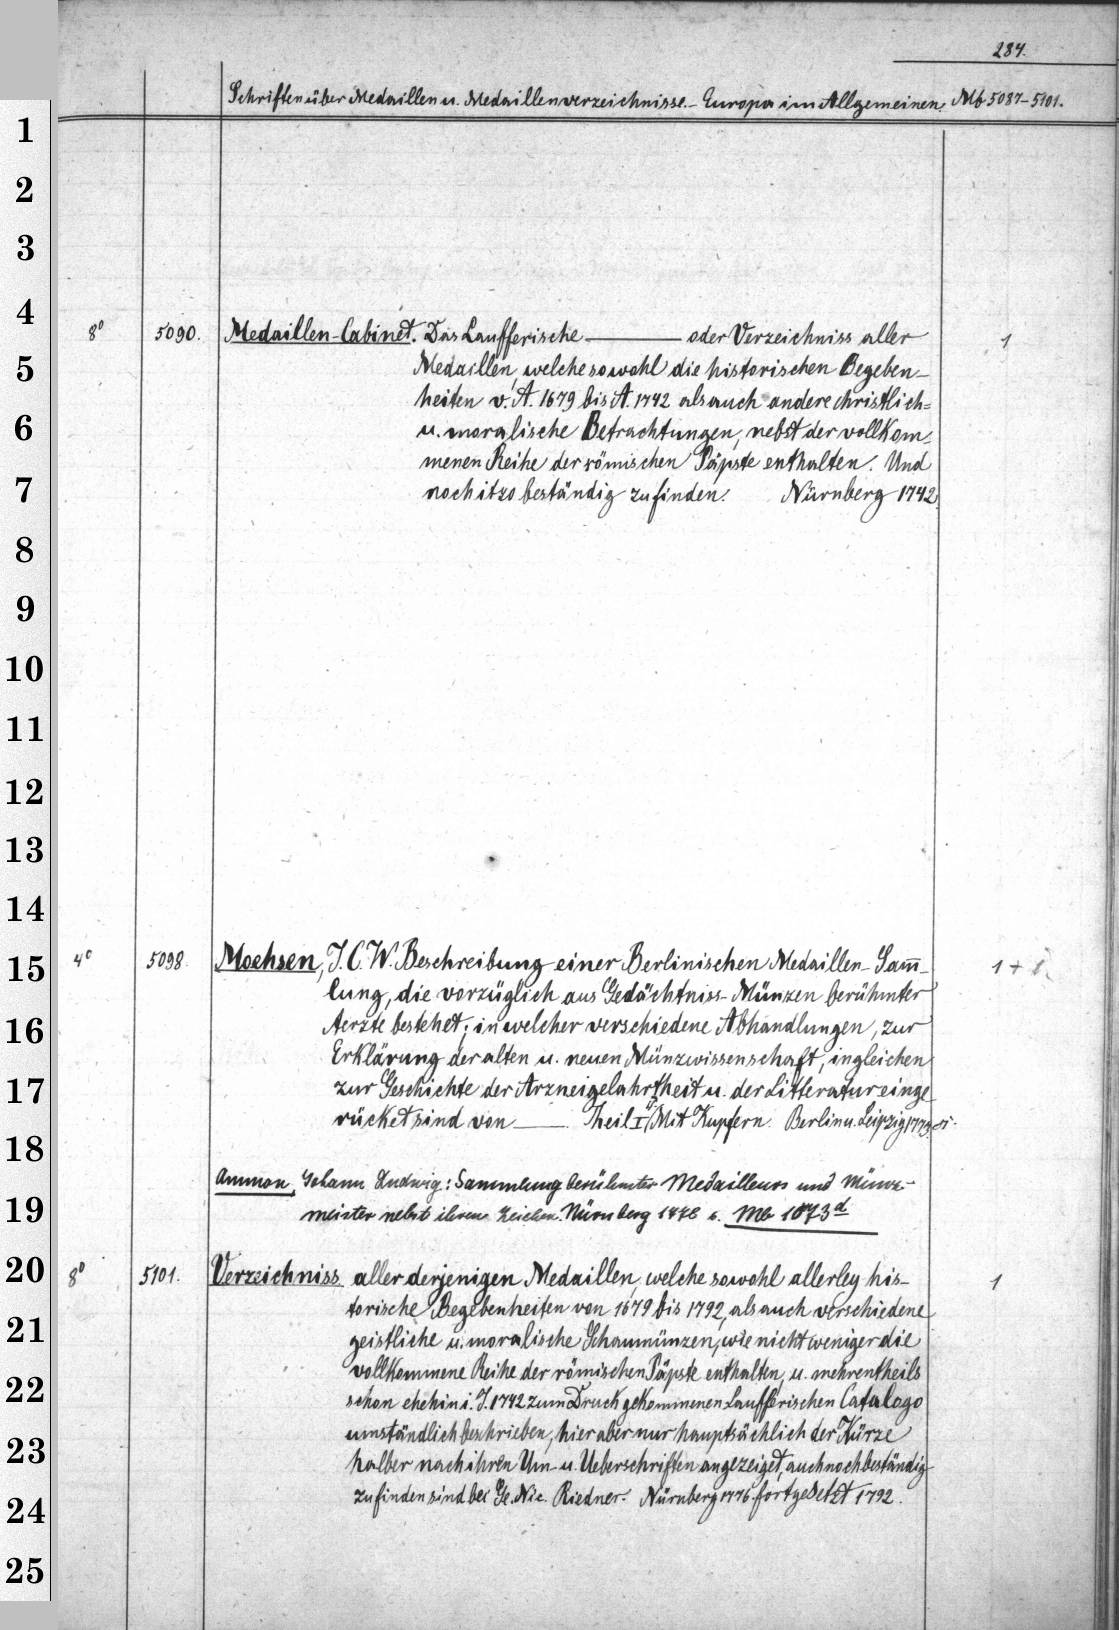 284.
Schriften über Medaillen u. Medaillenverzeichnisse. - Europa im Allgemeinen. Mb 5087-5101.
1
2
3
4
8° 5090. Medaillen-Cabinet. Das Laufferische ——— oder Verzeichniss aller 1
5
Medaillen, welche sowohl die historischen Begeben-
heiten v. A. 1679 bis A. 1742 als auch andere christlich-
6
u. moralische Betrachtungen, nebst der vollkom-
menen Reihe der römischen Päpste enthalten. Und
7
noch itzo beständig zu finden. Nürnberg 1742.
8
9
10
11
12
13
14
15
4° 5098. Moehsen, J. C. W. Beschreibung einer Berlinischen Medaillen-Sam̅- 1 + 1
lung, die vorzüglich aus Gedächtniss-Münzen berühmter
16
Aerzte bestehet; in welcher verschiedene Abhandlungen, zur
Erklärung der alten u. neuen Münzwissenschaft, ingleichen
17
zur Geschichte der Arzneigelahrtheit u. der Litteratur einge
rücket sind von ——. Theil I Mit Kupfern. Berlin u. Leipzig
18
Ammon, Johann Ludwig: Sammlung berühmter Medailleurs und Münz-
19
meister nebst ihren Zeichen. Nürnberg 1778 s. Mb 1073d
20
8° 5101. Verzeichniss aller derjenigen Medaillen, welche sowohl allerley his- 1
torische Begebenheiten von 1679 bis 1792, als auch verschiedene
21
geistliche u. moralische Schaumünzen, wie nicht weniger die
vollkommene Reihe der römischen Päpste enthalten, u. mehrentheils
22
schon ehehin i. J. 1742 zum Druck gekommenen Laufferischen Catalogo
umständlich beschrieben, hier aber nur hauptsächlich der Kürze
23
halber nach ihren Um- u. Ueberschriften angezeiget, auch noch beständig
24
zu finden sind bei Ge. Nic. Riedner. Nürnberg 1776. fortgesetzt 1792.
25